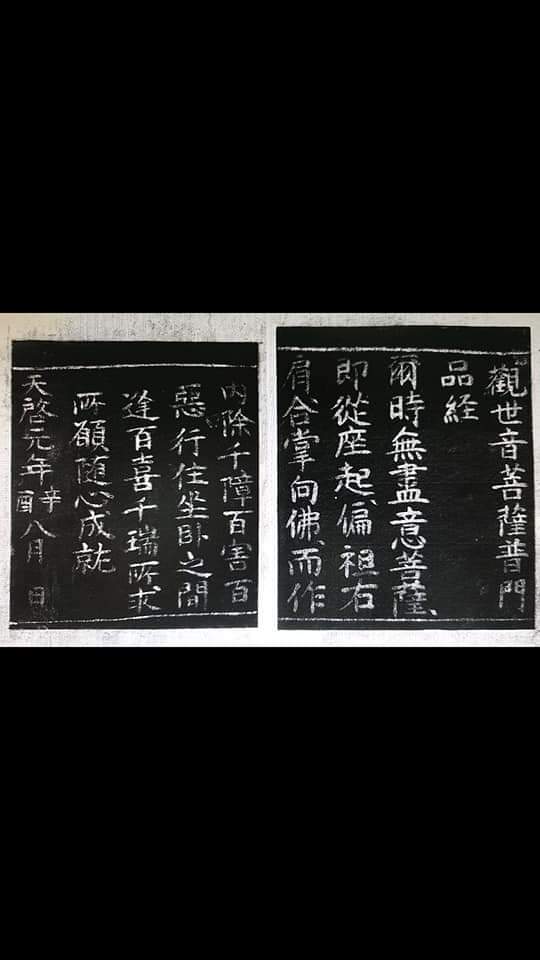 觀世音菩薩普門
品経
爾時無盡意菩薩
即從座起偏袒右
肩合掌向佛而作
內除千障百害百
惡行住坐卧之間
逢百喜千瑞所求
所願随心成就
天啓元年辛酉八月 日